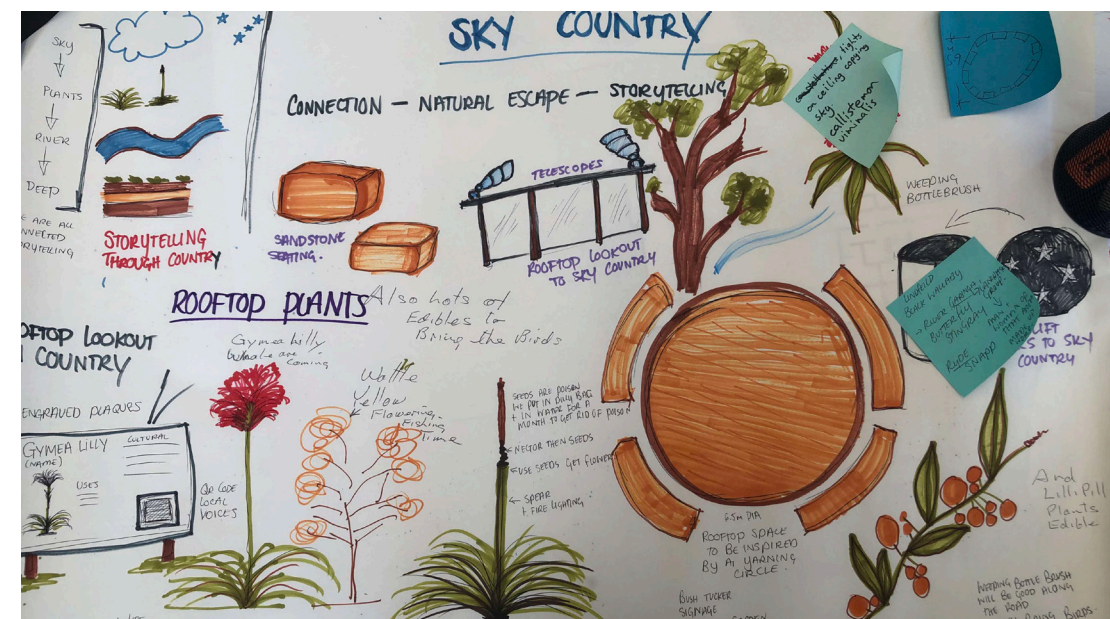 SKY COUNTRY
CONNECTION – NATURAL ESCAPE – STORYTELLING
SKY
PLANTS
RIVER
DEEP
ARE ALL
STORYTELLING
THROUGH COUNTRY
SANDSTONE
SEATING.
TELESCOPES
ROOFTOP LOOKOUT
TO SKY COUNTRY
lights
on ceiling copying
sky
callistemon
viminalis
WEEPING
BOTTLEBRUSH
UNAPOLD
ROCK WALLABY
RIVER GARDEN
BUTTERFLY
STINGRAY
LIFT
TO SKY
COUNTRY
ROOFTOP PLANTS
Also lots of
Edibles to
Bring the Birds
LOOKOUT
COUNTRY
ENGRAVED PLAQUES
GYMEA LILLY
(NAME)
CULTURAL
USES
QR CODE
LOCAL
VOICES
Gymea Lilly
whale are
coming
Wattle
Yellow
Flowering,
Fishing
Time
SEEDS ARE POISON
WE PUT IN DILLY BAG
+ IN WATER FOR A
MONTH TO GET RID OF POISON
NECTOR THEN SEEDS
USE SEEDS GET FLOWER
SPEAR
+ FIRE LIGHTING
6.5m DIA
ROOFTOP SPACE
TO BE INSPIRED
BY A YARNING
CIRCLE.
BUSH TUCKER
SIGNAGE
And
Lilli Pill
Plants
Edible
WEEPING BOTTLE BRUSH
WILL BE GOOD ALONG
THE ROAD
BIRDS.